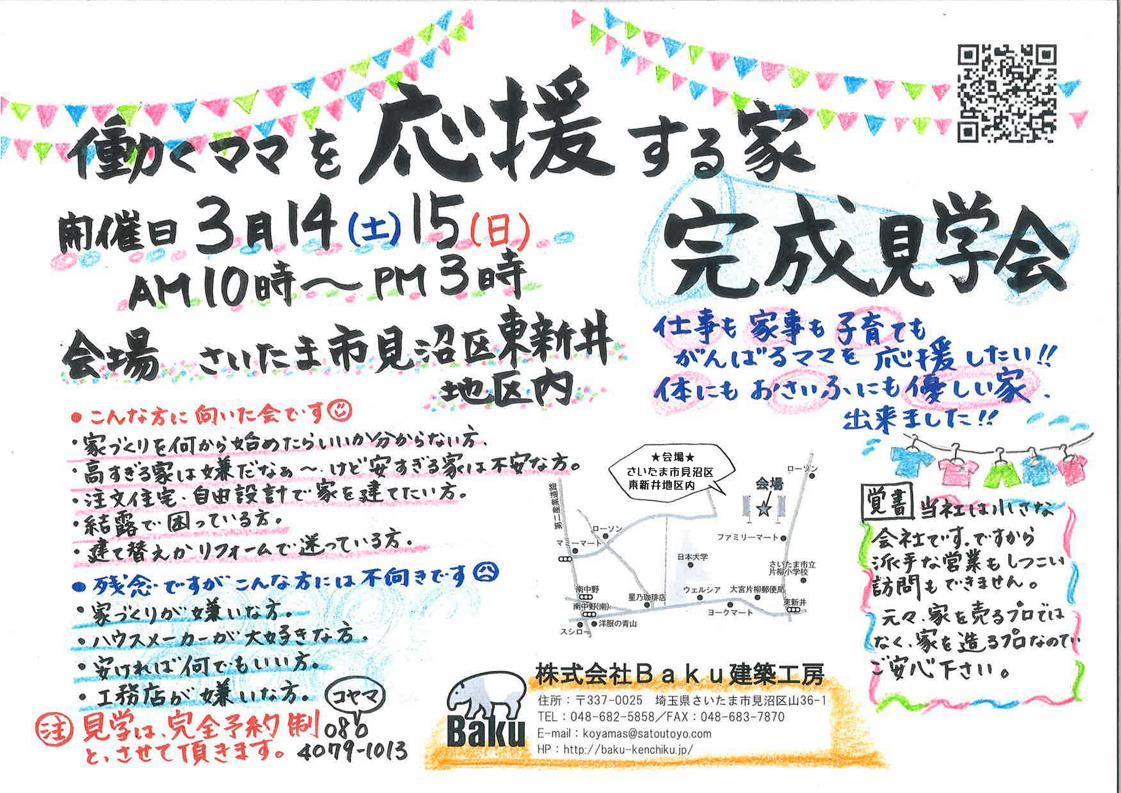 働くママを応援する家
完成見学会
開催日 3月14(土)15(日)
AM10時〜PM3時
会場 さいたま市見沼区東新井
地区内
仕事も家事も子育ても
がんばるママを応援したい!!
体にもおさいふにも優しい家、
出来ました!!
●こんな方に向いた会です
・家づくりを何から始めたらいいか分からない方、
・高すぎる家は嫌だなぁ〜、けど安すぎる家は不安な方。
・注文住宅、自由設計で家を建てたい方。
・結露で困っている方。
・建て替えかリフォームで迷っている方。
●残念ですがこんな方には不向きです
・家づくりが嫌いな方。
・ハウスメーカーが大好きな方。
・安ければ何でもいい方。
・工務店が嫌いな方。
注 見学は、完全予約制
と、させて頂きます。
コヤマ
080
4079-1013
★会場★
さいたま市見沼区
東新井地区内
会場
ローソン
第二産業道路
ローソン
マミーマート
ファミリーマート
日本大学
さいたま市立
片柳小学校
南中野
南中野(南)
星乃珈琲店
ウェルシア
大宮片柳郵便局
ヨークマート
東新井
スシロー
洋服の青山
覚書 当社は小さな
会社です。ですから
派手な営業もしつこい
訪問もできません。
元々、家を売るプロでは
なく、家を造るプロなので
ご安心下さい。
Baku
株式会社Baku建築工房
住所:〒337-0025 埼玉県さいたま市見沼区山36-1
TEL:048-682-5858/FAX:048-683-7870
E-mail:koyamas@satoutoyo.com
HP:http://baku-kenchiku.jp/